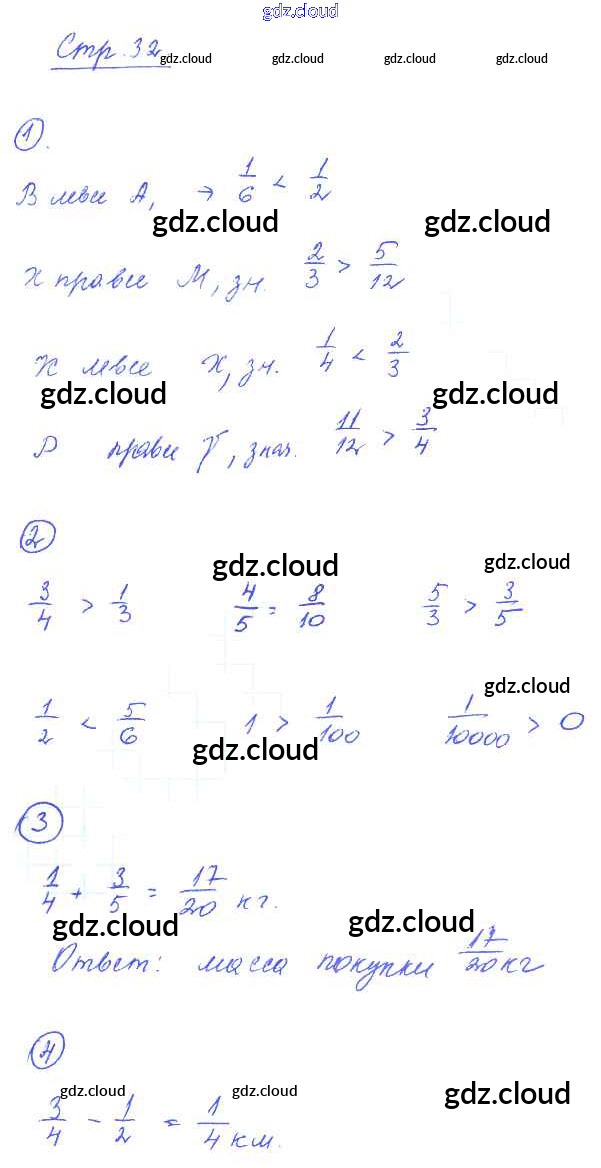 gdz.cloud
Стр. 32
gdz.cloud gdz.cloud gdz.cloud gdz.cloud
1.
В левее А, → 1/6 < 1/2
gdz.cloud gdz.cloud
К правее М, зн. 2/3 > 5/12
К левее Х, зн. 1/4 < 2/3
gdz.cloud gdz.cloud
Р правее Т, знач. 11/12 > 3/4
2
gdz.cloud gdz.cloud
3/4 > 1/3 4/5 = 8/10 5/3 > 3/5
gdz.cloud
1/2 < 5/6 1 > 1/100 1/10000 > 0
gdz.cloud
3
1/4 + 3/5 = 17/20 кг.
gdz.cloud gdz.cloud
Ответ: масса покупки 17/20 кг
4
gdz.cloud gdz.cloud gdz.cloud
3/4 - 1/2 = 1/4 км.